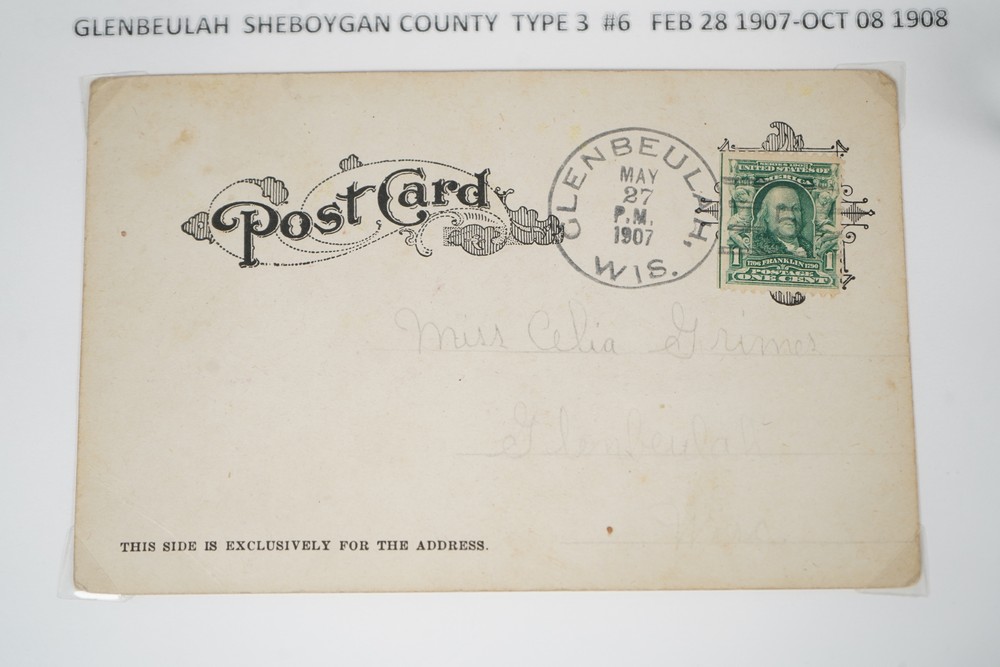 GLENBEULAH SHEBOYGAN COUNTY TYPE 3 #6 FEB 28 1907-OCT 08 1908
Post Card
GLENBEULAH, WIS.
MAY
27
P.M.
1907
UNITED STATES OF
AMERICA
1 1
1706 FRANKLIN 1790
POSTAGE
ONE CENT
Miss Celia Grimes
Glenbeulah
THIS SIDE IS EXCLUSIVELY FOR THE ADDRESS.